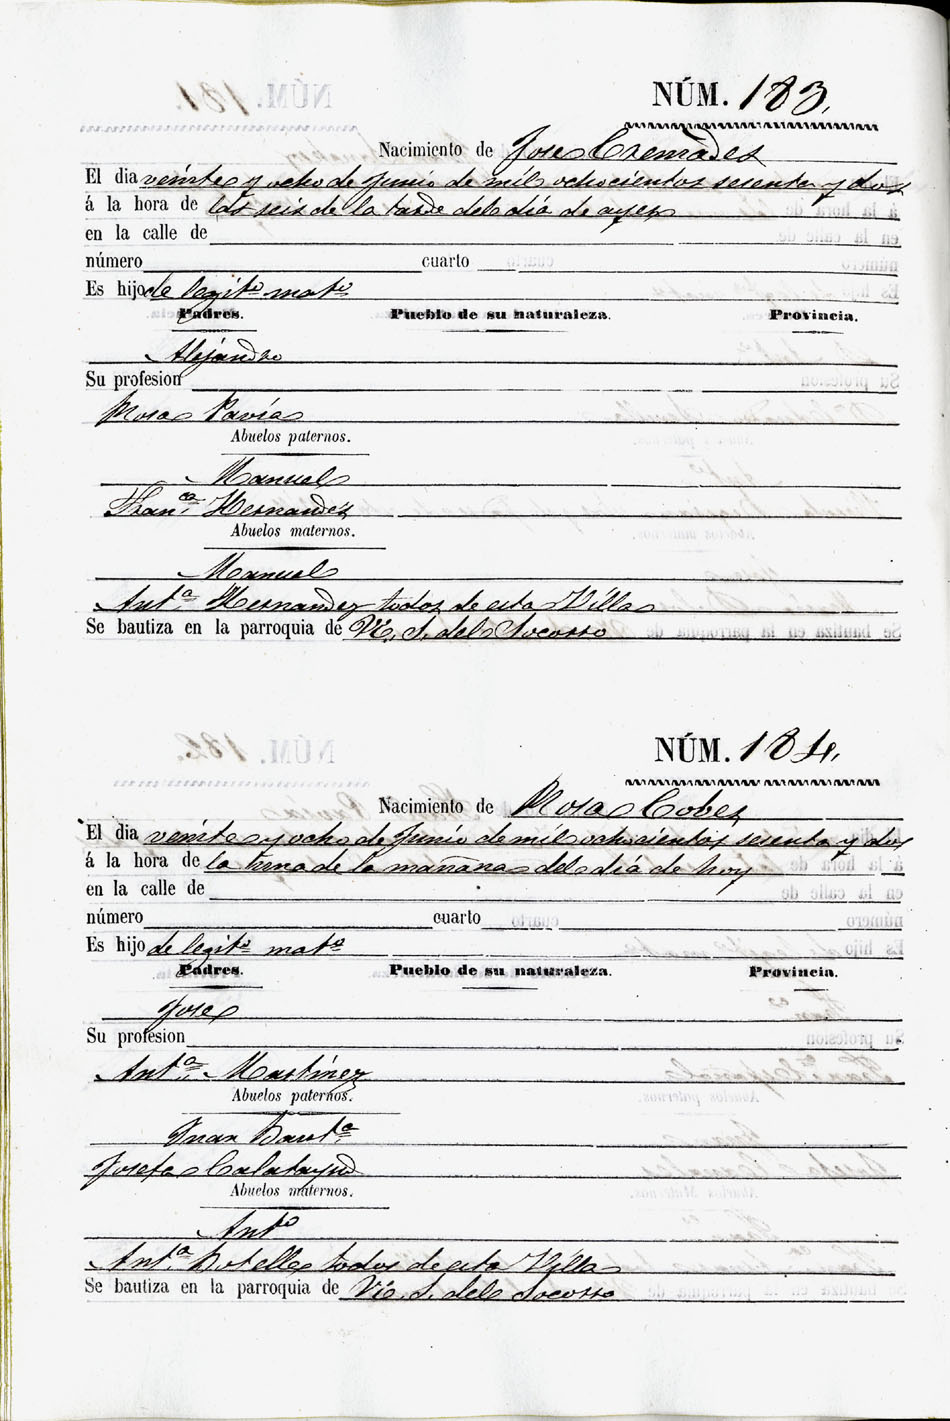 NÚM. 183.
Nacimiento de Jose Cremades
El dia veinte y ocho de Junio de mil ochocientos sesenta y dos
á la hora de las seis de la tarde del dia de ayer
en la calle de
número cuarto
Es hijo de legitº matº
Padres. Pueblo de su naturaleza. Provincia.
Alejandro
Su profesion
Rosa Pavia
Abuelos paternos.
Manuel
Franca Hernandez
Abuelos maternos.
Manuel
Antª Hernandez todos de esta Villa
Se bautiza en la parroquia de Ntª. S. del Socorro
NÚM. 184.
Nacimiento de Rosa Cobes
El dia veinte y ocho de Junio de mil ochocientos sesenta y dos
á la hora de la una de la mañana del dia de hoy
en la calle de
número cuarto
Es hijo de legitº matº
Padres. Pueblo de su naturaleza. Provincia.
Jose
Su profesion
Antª Martinez
Abuelos paternos.
Juan Bautª
Josefa Calatayud
Abuelos maternos.
Antº
Antª Botella todos de esta Villa
Se bautiza en la parroquia de Ntª. S. del Socorro